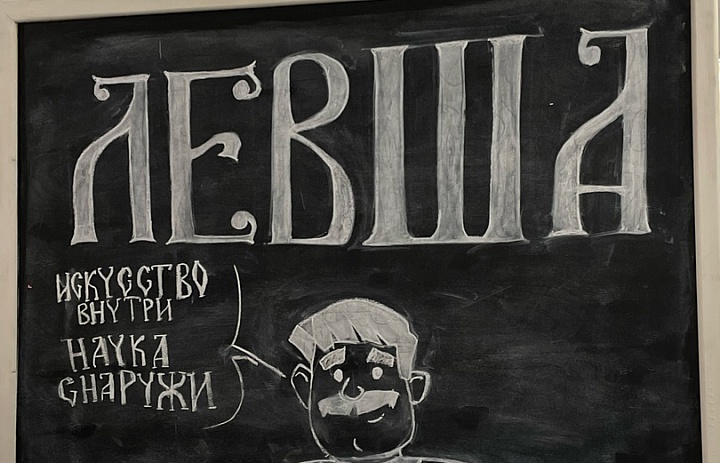 ЛЕВША
ИСКУССТВО
ВНУТРИ
НАУКА
СНАРУЖИ